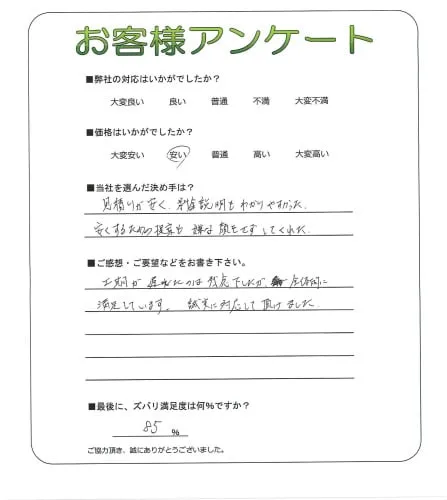 お客様アンケート
■弊社の対応はいかがでしたか？
大変良い 良い 普通 不満 大変不満
■価格はいかがでしたか？
大変安い 安い 普通 高い 大変高い
■当社を選んだ決め手は？
見積りが安く、説明もわかりやすかった。
安くするための提案も 嫌な顔をせずしてくれた。
■ご感想・ご要望などをお書き下さい。
工期が遅れたのは残念でしたが 全体的に
満足しています。 誠実に対応して頂けました。
■最後に、ズバリ満足度は何%ですか？
85 %
ご協力頂き、誠にありがとうございました。